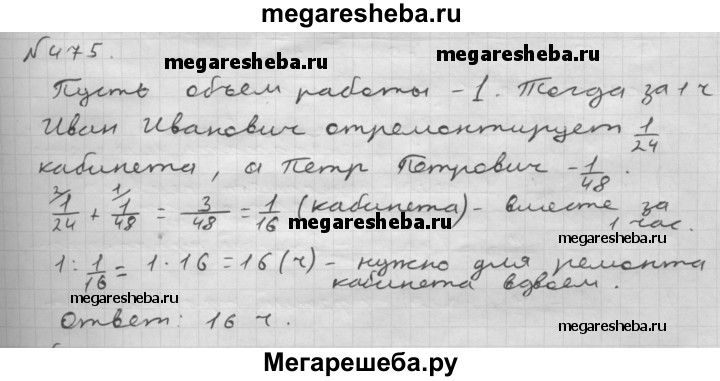 megaresheba.ru
№475.
megaresheba.ru megaresheba.ru
Пусть объем работы - 1. Тогда за 1 ч
Иван Иванович отремонтирует 1/24
кабинета, а Петр Петрович - 1/48.
2/ 1/24 + 1/ 1/48 = 3/48 = 1/16 (кабинета) - вместе за
1 час.
megaresheba.ru
1 : 1/16 = 1 · 16 = 16 (ч) - нужно для ремонта
кабинета вдвоем.
megaresheba.ru
Ответ: 16 ч.
megaresheba.ru
Мегарешеба.ру